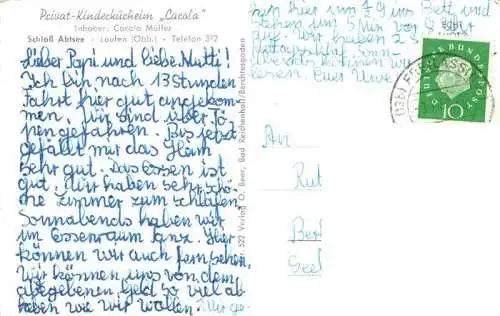 Privat-Kinderkücheim „Carola"
Inhaber: Carola Müller
Schloß Abtsee • Laufen (Obb.) - Telefon 372
Lieber Papi und liebe Mutti!
Ich bin nach 13 Stunden
Fahrt hier gut angekom-
men, wir sind über Tö-
pen gefahren. Bis jetzt
gefällt mir das Heim
sehr gut. Das Essen ist
gut, wir haben sehr schö-
ne Zimmer zum schlafen,
Sonnabends haben wir
im Essenraum Tanz. Hier
können wir auch fernsehen,
Wir können uns von dem
abgegebenen Geld so viel ab
haben wie wir wollen. Wir ge-
hen hier um ½9 ins Bett und
stehen um
auf. Wir haben 2 S
Mittagschlaf
Euer Uwe
522 Verlag O. Beer, Bad Reichenhall/Berchtesgaden
DEUTSCHE BUNDESPOST
10
(13b) FREILASSING
An
Rut
Berl
Seel